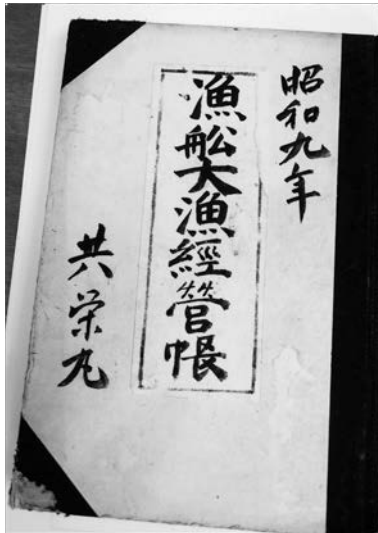 昭和九年
漁船大漁經營帳
共栄丸